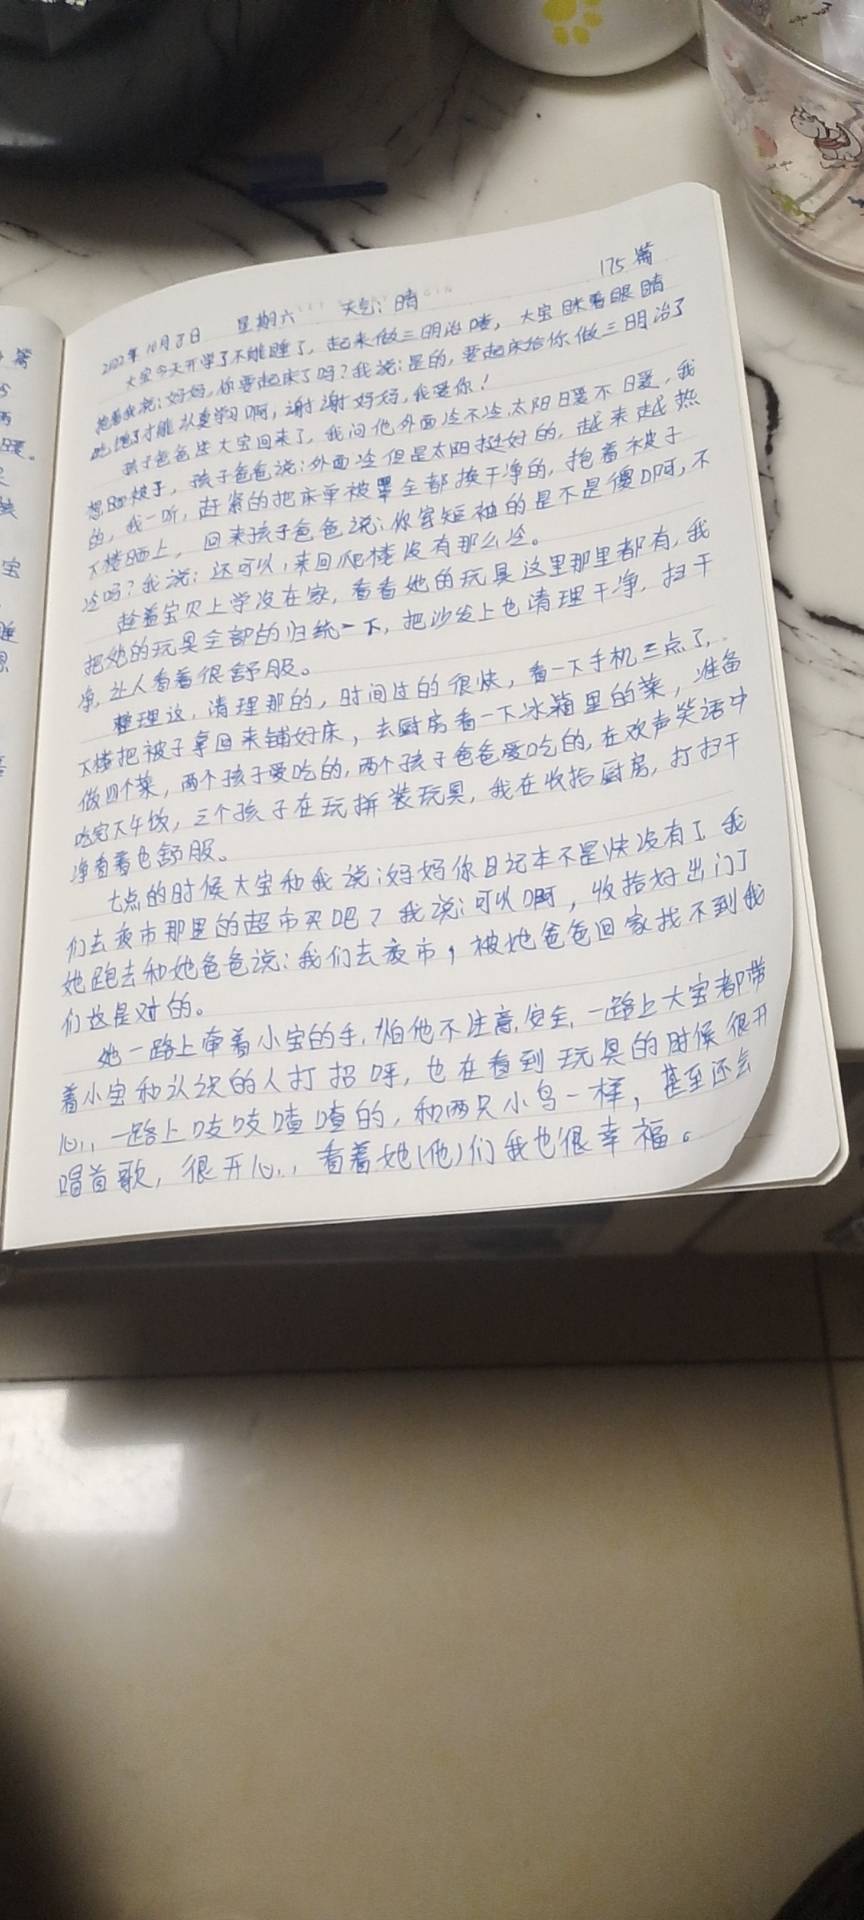 175篇
2022年10月8日 星期六 天气:晴
大宝今天开学了不能睡了,起来做三明治喽,大宝眯着眼睛
抱着我说:妈妈,你要起床了吗?我说:是的,要起床给你做三明治了
吃饱了才能认真学习啊,谢谢妈妈,我爱你!
孩子爸爸送大宝回来了,我问他外面冷不冷,太阳暖不暖,我
想晒被子,孩子爸爸说:外面冷但是太阳挺好的,越来越热
的,我一听,赶紧的把床单被罩全都换干净的,抱着被子
下楼晒上,回来孩子爸爸说:你穿短袖的是不是傻啊,不
冷吗?我说:还可以,来回爬楼没有那么冷。
趁着宝贝上学没在家,看看她的玩具这里那里都有,我
把她的玩具全部的归统一下,把沙发上也清理干净,扫干
净,让人看着很舒服。
整理这,清理那的,时间过的很快,看一下手机三点了,
下楼把被子拿回来铺好床,去厨房看一下冰箱里的菜,准备
做四个菜,两个孩子爱吃的,两个孩子爸爸爱吃的,在欢声笑语中
吃完下午饭,三个孩子在玩拼装玩具,我在收拾厨房,打扫干
净看着也舒服。
七点的时候大宝和我说:妈妈你日记本不是快没有了,我
们去夜市那里的超市买吧?我说:可以啊,收拾好出门了
她跑去和她爸爸说:我们去夜市,被她爸爸回家找不到我
们这是对的。
她一路上牵着小宝的手,怕他不注意,安全,一路上大宝都带
着小宝和认识的人打招呼,也在看到玩具的时候很开
心,一路上吱吱喳喳的,和两只小鸟一样,甚至还会
唱首歌,很开心,看着她(他)们我也很幸福。